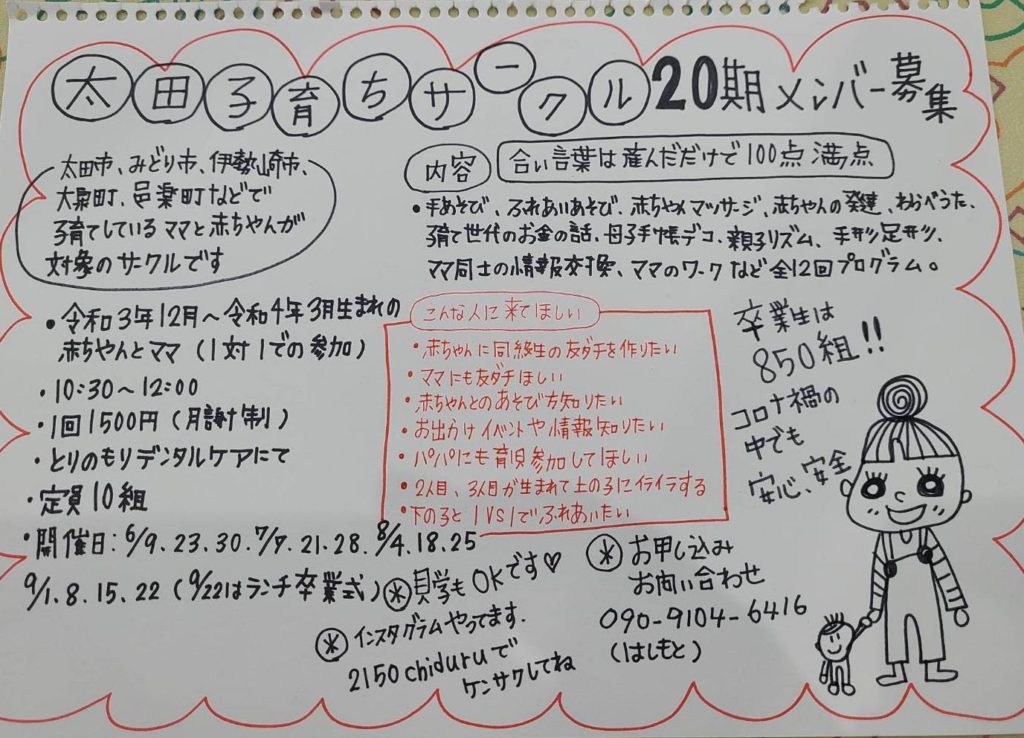 太田子育ちサークル20期メンバー募集
太田市、みどり市、伊勢崎市、
大泉町、邑楽町などで
子育てしているママと赤ちゃんが
対象のサークルです
内容
合い言葉は産んだだけで100点満点
•手あそび、ふれあいあそび、赤ちゃんマッサージ、赤ちゃんの発達、わらべうた、
子育て世代のお金の話、母子手帳デコ、親子リズム、手形足形、
ママ同士の情報交換、ママのワークなど全12回プログラム。
•令和3年12月〜令和4年3月生まれの
赤ちゃんとママ(1対1での参加)
•10:30〜12:00
•1回1500円(月謝制)
•とりのもりデンタルケアにて
•定員10組
•開催日:6/9.23.30.7/7.21.28.8/4.18.25
9/1.8.15.22(9/22はランチ卒業式)
こんな人に来てほしい
•赤ちゃんに同級生の友ダチを作りたい
•ママにも友ダチほしい
•赤ちゃんとのあそび方知りたい
•お出かけイベントや情報知りたい
•パパにも育児参加してほしい
•2人目、3人目が生まれて上の子にイライラする
•下の子と1VS1でふれあいたい
卒業生は
850組!!
コロナ禍の
中でも
安心、安全
※見学もOKです♡
※インスタグラムやってます.
2150chiduruで
ケンサクしてね
※お申し込み
お問い合わせ
090-9104-6416
(はしもと)